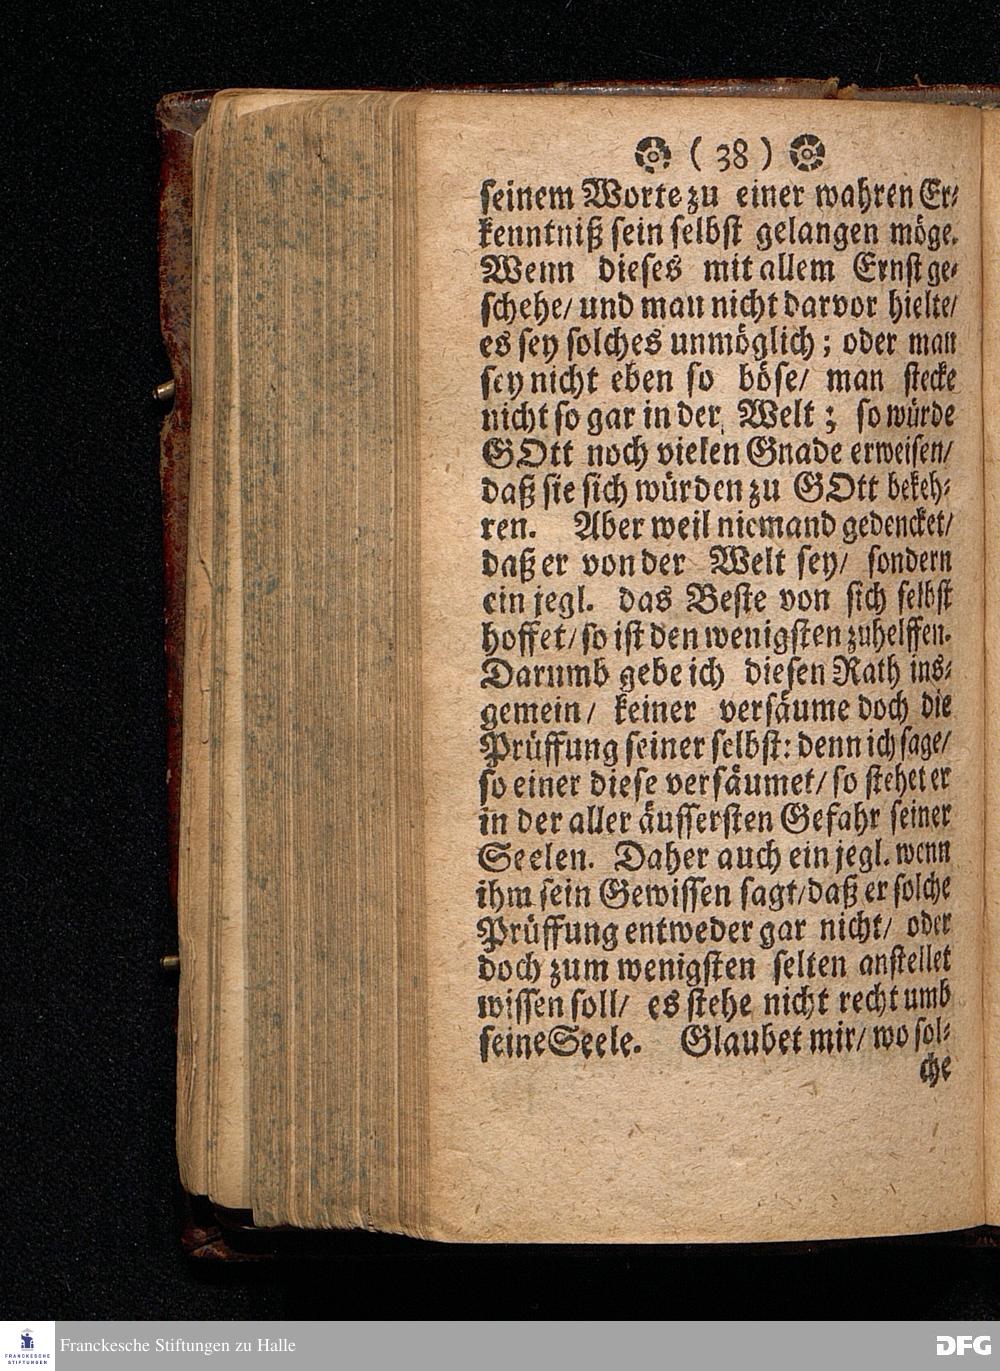 ( 38 )
seinem Worte zu einer wahren Er⸗
kenntniß sein selbst gelangen möge.
Wenn dieses mit allem Ernst ge⸗
schehe/ und man nicht darvor hielte/
es sey solches unmöglich; oder man
sey nicht eben so böse/ man stecke
nicht so gar in der Welt; so würde
GOtt noch vielen Gnade erweisen/
daß sie sich würden zu GOtt bekeh⸗
ren. Aber weil niemand gedencket/
daß er von der Welt sey/ sondern
ein jegl. das Beste von sich selbst
hoffet/ so ist den wenigsten zuhelffen.
Darumb gebe ich diesen Rath ins⸗
gemein/ keiner versäume doch die
Prüffung seiner selbst: denn ich sage/
so einer diese versäumet/ so stehet er
in der aller äussersten Gefahr seiner
Seelen. Daher auch ein jegl. wenn
ihm sein Gewissen sagt/ daß er solche
Prüffung entweder gar nicht/ oder
doch zum wenigsten selten anstellet
wissen soll/ es stehe nicht recht umb
seine Seele. Glaubet mir/ wo sol⸗
che
FRANCKESCHE STIFTUNGEN
Franckesche Stiftungen zu Halle
DFG